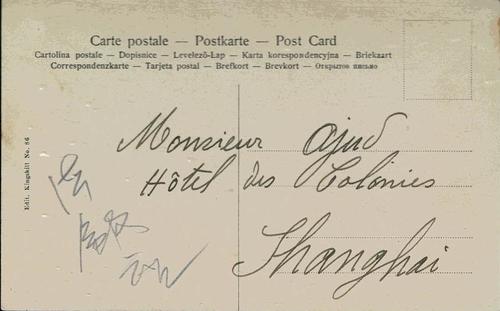 Carte postale — Postkarte — Post Card
Cartolina postale — Dopisnice — Levelezö-Lap — Karta korespondencyjna — Briekaart
Correspondenzkarte — Tarjeta postal — Brefkort — Brevkort — Открытое письмо
Monsieur Ajud
Hôtel des Colonies
Shanghai
Edit. Kingshill No. 86